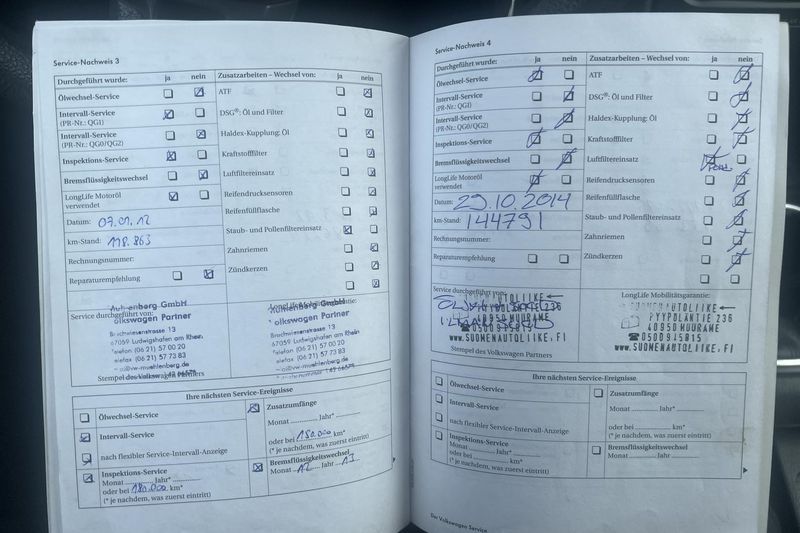 Service-Nachweis 3
Durchgeführt wurde: ja nein
Ölwechsel-Service
Intervall-Service
(PR-Nr.: QG1)
Intervall-Service
(PR-Nr.: QG0/QG2)
Inspektions-Service
Bremsflüssigkeitswechsel
LongLife Motoröl
verwendet
Datum: 03.01.12
km-Stand: 118.863
Rechnungsnummer:
Reparaturempfehlung
Zusatzarbeiten – Wechsel von: ja nein
ATF
DSG®: Öl und Filter
Haldex-Kupplung: Öl
Kraftstofffilter
Luftfiltereinsatz
Reifendrucksensoren
Reifenfüllflasche
Staub- und Pollenfiltereinsatz
Zahnriemen
Zündkerzen
Service durchgeführt von:
GmbH
olkswagen Partner
Bruchwiesenstrasse 13
67059 Ludwigshafen am Rhein
Telefon (06 21) 57 00 20
Telefax (06 21) 57 73 83
Stempel des Volkswagen Partners
LongLife Mobilitätsgarantie:
GmbH
olkswagen Partner
Bruchwiesenstrasse 13
67059 Ludwigshafen am Rhein
Telefon (06 21) 57 00 20
Telefax (06 21) 57 73 83
Ihre nächsten Service-Ereignisse
Ölwechsel-Service
Intervall-Service
nach flexibler Service-Intervall-Anzeige
Inspektions-Service
Monat Jahr*
oder bei 180.000 km*
(* je nachdem, was zuerst eintritt)
Zusatzumfänge
Monat Jahr*
oder bei 180.000 km*
(* je nachdem, was zuerst eintritt)
Bremsflüssigkeitswechsel
Monat 12 Jahr 13
Service-Nachweis 4
Durchgeführt wurde: ja nein
Ölwechsel-Service
Intervall-Service
(PR-Nr.: QG1)
Intervall-Service
(PR-Nr.: QG0/QG2)
Inspektions-Service
Bremsflüssigkeitswechsel
LongLife Motoröl
verwendet
Datum: 29.10.2014
km-Stand: 144791
Rechnungsnummer:
Reparaturempfehlung
Zusatzarbeiten – Wechsel von: ja nein
ATF
DSG®: Öl und Filter
Haldex-Kupplung: Öl
Kraftstofffilter
Luftfiltereinsatz
Reifendrucksensoren
Reifenfüllflasche
Staub- und Pollenfiltereinsatz
Zahnriemen
Zündkerzen
Service durchgeführt von:
Stempel des Volkswagen Partners
LongLife Mobilitätsgarantie:
SUOMENAUTOLIIKE
PYYPOLANTIE 236
40950 MUURAME
☎0500945815
WWW.SUOMENAUTOLIIKE.FI
Ihre nächsten Service-Ereignisse
Ölwechsel-Service
Intervall-Service
nach flexibler Service-Intervall-Anzeige
Inspektions-Service
Monat Jahr*
oder bei km*
(* je nachdem, was zuerst eintritt)
Zusatzumfänge
Monat Jahr*
oder bei km*
(* je nachdem, was zuerst eintritt)
Bremsflüssigkeitswechsel
Monat Jahr
Der Volkswagen Service